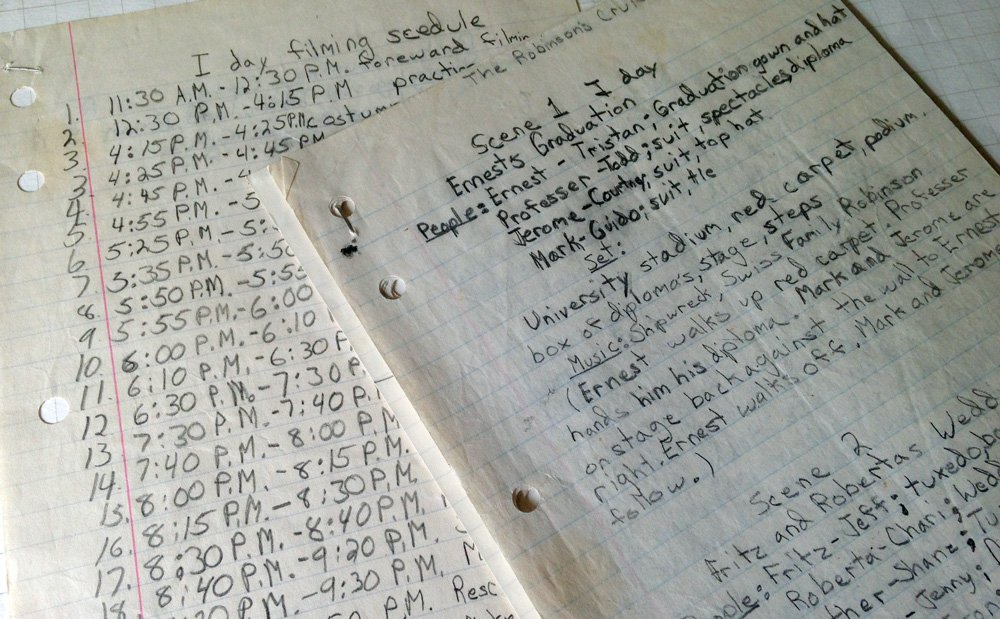 I day filming scedule
1. 11:30 A.M. - 12:30 P.M. foreward filmin
2. 12:30 P.M. - 4:15 P.M. practi
3 4:15 P.M. - 4:25 P.M. costum
3 4:25 P.M. - 4:45 PM
4. 4:45 P.M. - 4
5. 4:55 P.M. - 5
6 5:25 P.M. - 5:
7 5:35 P.M. - 5:50
8. 5:50 P.M. - 5:55
9 5:55 P.M. - 6:00
10. 6:00 P.M. - 6:10
11. 6:10 P.M. - 6:30 P
12 6:30 P.M. - 7:30 P
13. 7:30 P.M. - 7:40 P.
14. 7:40 P.M. - 8:00 P.M.
15. 8:00 P.M. - 8:15 P.M.
16. 8:15 P.M. - 8:30 P.M.
17. 8:30 P.M. - 8:40 P.M.
18. 8:40 P.M. - 9:20 P.M.
20 P.M. - 9:30 P.M. M
P.M. Resc
The Robinson's Crui
Scene 1 I day
Ernests Graduation
People: Ernest - Tristan; Graduation gown and hat
Professer - Todd; suit, spectacles, diploma
Jerome - Courtney; suit, top hat
Mark - Guido; suit, tie
Set:
University stadium, red carpet, podium.
box of diploma's, stage, steps
Music: Shipwreck, Swiss Family Robinson
(Ernest walks up red carpet. Professer
hands him his diploma. Mark and Jerome are
on stage back against the wall to Ernest
right. Ernest walks off. Mark and Jerome
follow.)
Scene 2
Fritz and Robertas Wedd
People: Fritz - Jeff; tuxedo, b
Roberta - Chari; Wedd
ther - Shanz; Tu
- Jenny;